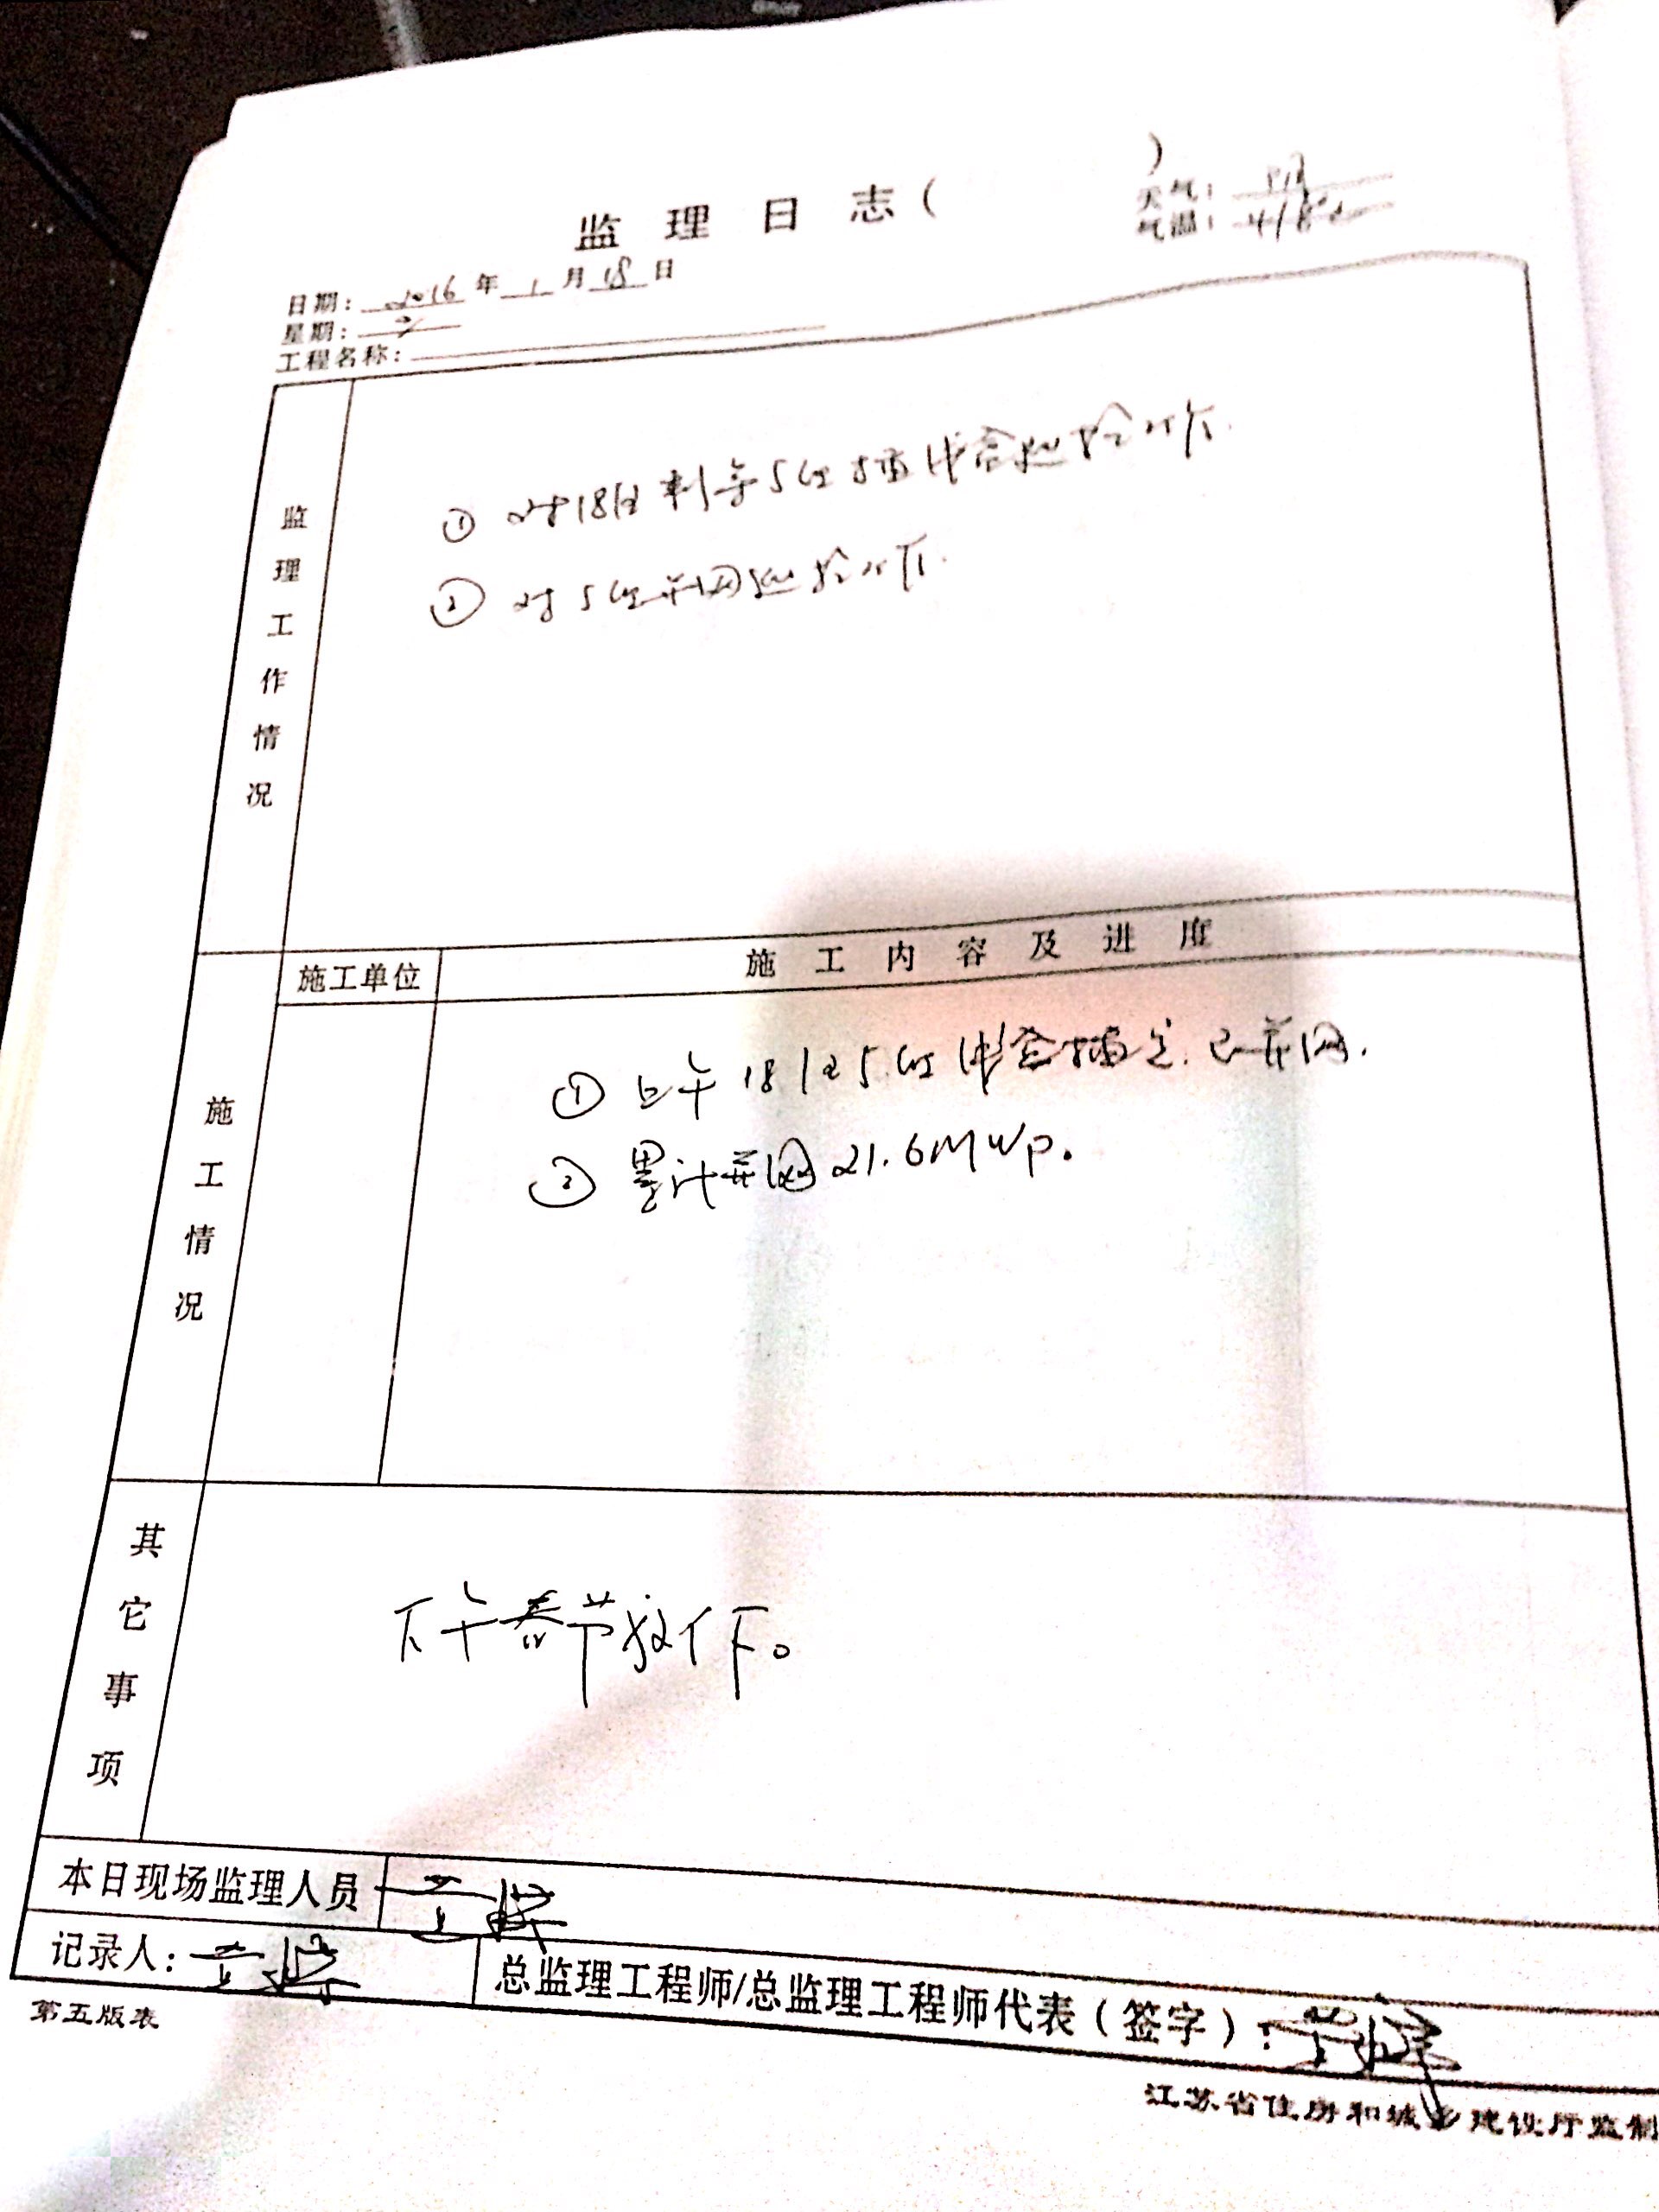 监理日志( )
天气: 阴
气温: 4/8℃
日期: 2016年1月18日
星期:
工程名称:
监理工作情况
① 对18区剩余5组插件合 巡检工作.
② 对5组并网巡检工作.
施工单位
施工内容及进度
施工情况
① 上午18区5组 插完.已并网.
② 累计并网21.6MWp.
其它事项
下午春节放假。
本日现场监理人员
记录人:
总监理工程师/总监理工程师代表(签字):
第五版表
江苏省住房和城乡建设厅监制